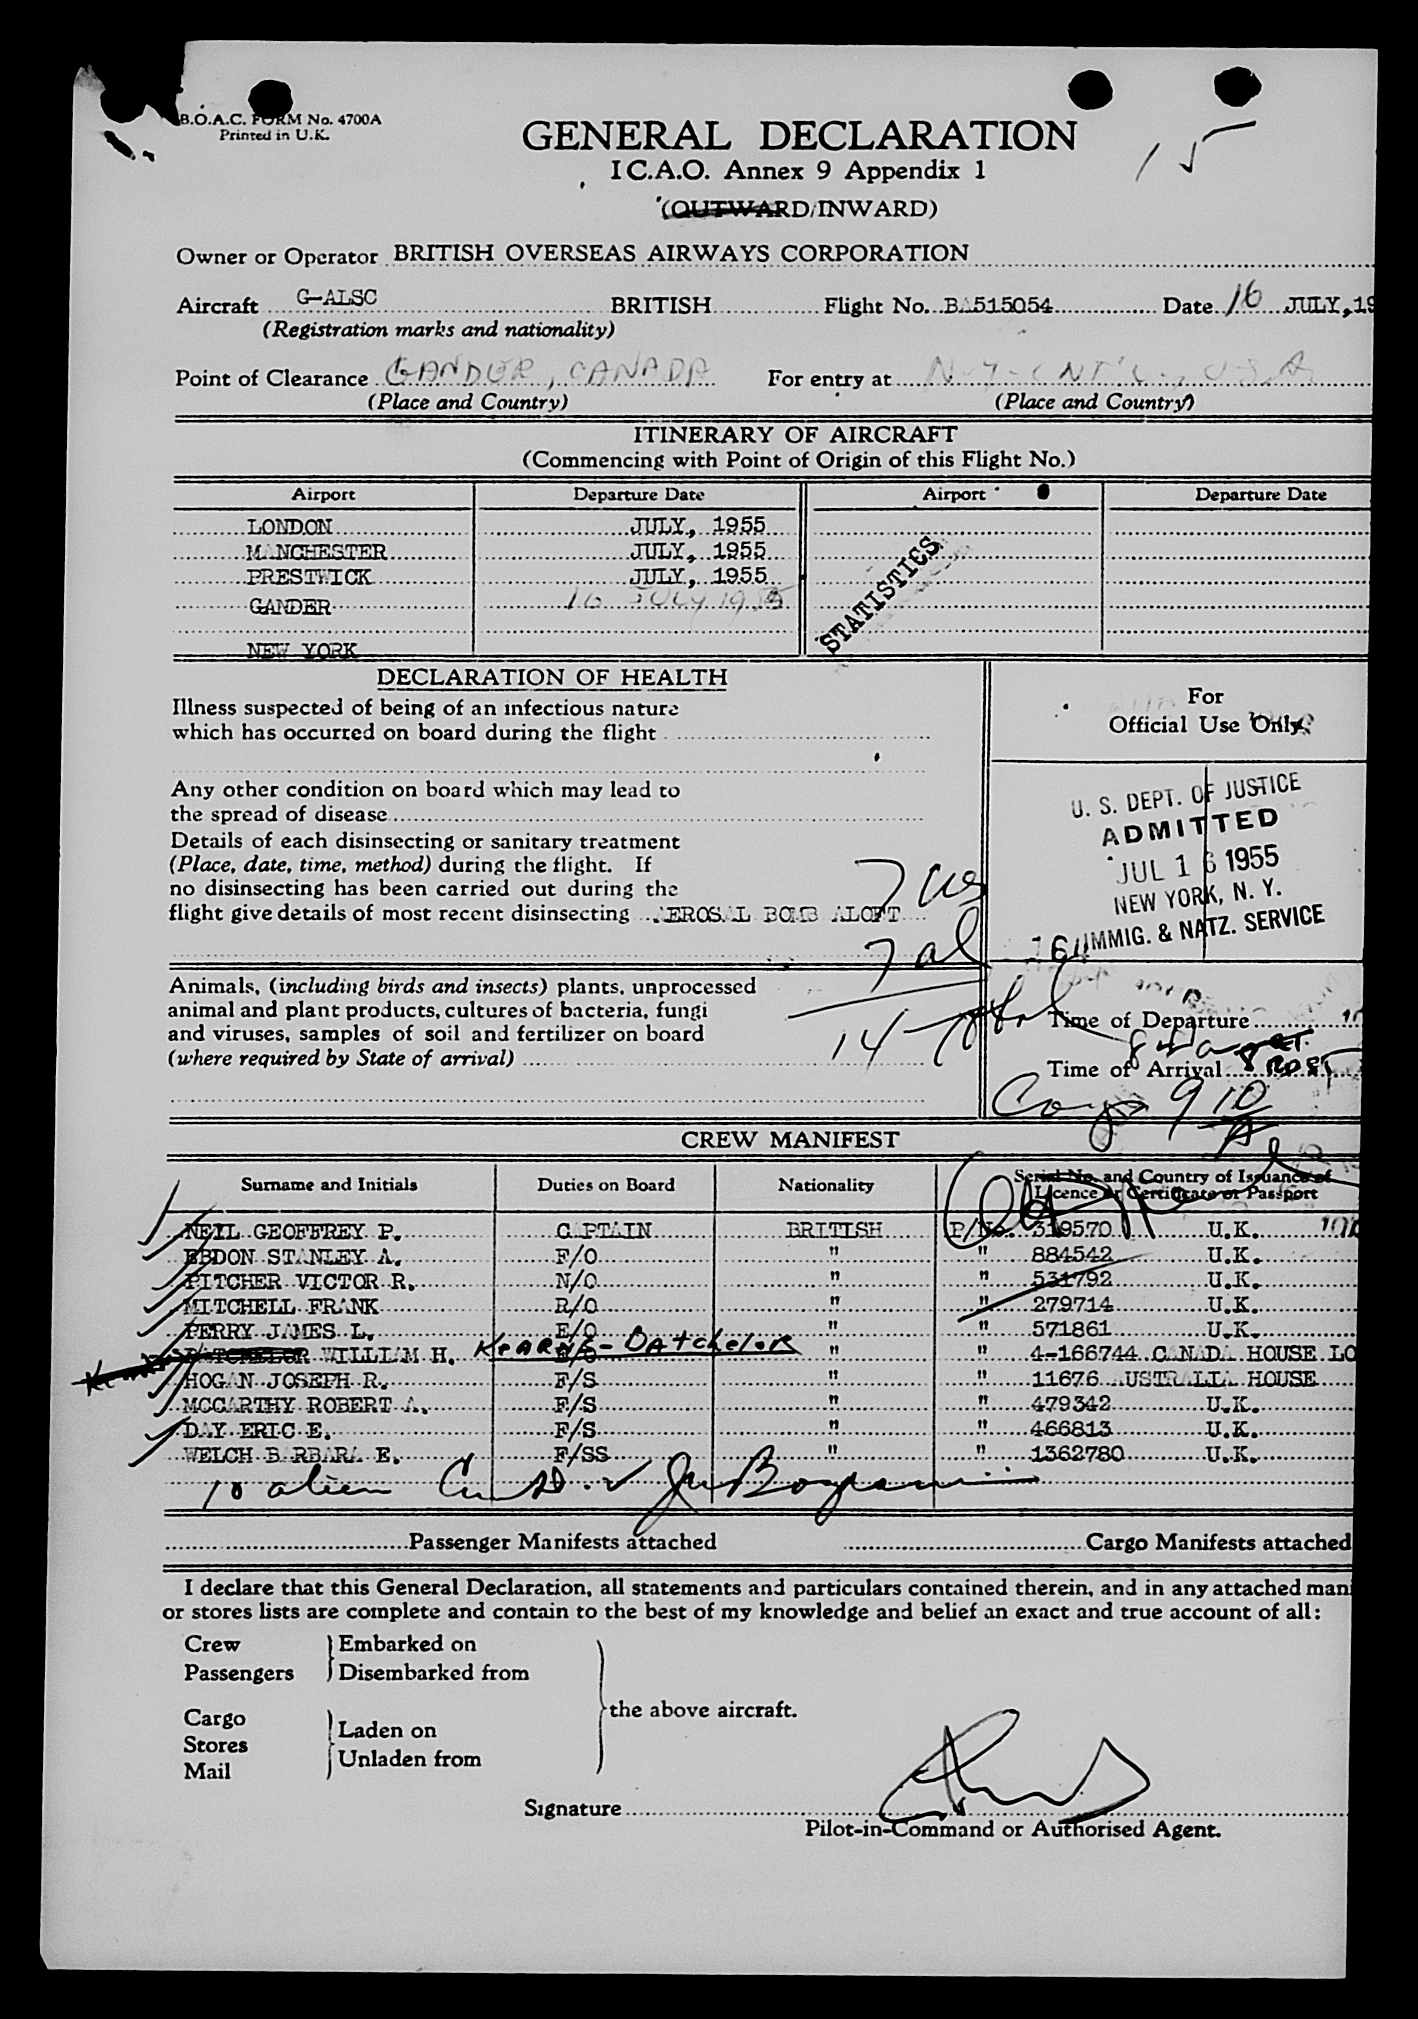 B.O.A.C. FORM No. 4700A
Printed in U.K.
GENERAL DECLARATION
I C.A.O. Annex 9 Appendix 1
15
(OUTWARD/INWARD)
Owner or Operator BRITISH OVERSEAS AIRWAYS CORPORATION
Aircraft G-ALSC BRITISH Flight No. BA515054 Date 16 JULY, 19
(Registration marks and nationality)
Point of Clearance GANDER, CANADA For entry at N.Y. INT'L., U.S.A.
(Place and Country) (Place and Country)
ITINERARY OF AIRCRAFT
(Commencing with Point of Origin of this Flight No.)
Airport Departure Date Airport Departure Date
LONDON JULY, 1955
MANCHESTER JULY, 1955
PRESTWICK JULY, 1955
GANDER 16 JULY 1955
NEW YORK
STATISTICS
DECLARATION OF HEALTH
Illness suspected of being of an infectious nature
which has occurred on board during the flight
Any other condition on board which may lead to
the spread of disease
Details of each disinsecting or sanitary treatment
(Place, date, time, method) during the flight. If
no disinsecting has been carried out during the
flight give details of most recent disinsecting AEROSAL BOMB ALOFT
7 us
7 al
14
Animals, (including birds and insects) plants, unprocessed
animal and plant products, cultures of bacteria, fungi
and viruses, samples of soil and fertilizer on board
(where required by State of arrival)
For
Official Use Only
U. S. DEPT. OF JUSTICE
ADMITTED
JUL 16 1955
NEW YORK, N. Y.
IMMIG. & NATZ. SERVICE
Time of Departure
Time of Arrival
910
CREW MANIFEST
Surname and Initials Duties on Board Nationality Serial No. and Country of Issuance of
Licence or Certificate or Passport
NEIL GEOFFREY P. CAPTAIN BRITISH P/No. 319570 U.K.
EBDON STANLEY A. F/O " " 884542 U.K.
PITCHER VICTOR R. N/O " " 531792 U.K.
MITCHELL FRANK R/O " " 279714 U.K.
PERRY JAMES L. E/O " " 571861 U.K.
BATCHELOR WILLIAM H. KEARNS-BATCHELOR " " 4-166744 CANADA HOUSE LO
HOGAN JOSEPH R. F/S " " 11676 AUSTRALIA HOUSE
MCCARTHY ROBERT A. F/S " " 479342 U.K.
DAY ERIC E. F/S " " 466813 U.K.
WELCH BARBARA E. F/SS " " 1362780 U.K.
10 alien
Passenger Manifests attached Cargo Manifests attached
I declare that this General Declaration, all statements and particulars contained therein, and in any attached man
or stores lists are complete and contain to the best of my knowledge and belief an exact and true account of all:
Crew Embarked on
Passengers Disembarked from
the above aircraft.
Cargo Laden on
Stores Unladen from
Mail
Signature
Pilot-in-Command or Authorised Agent.